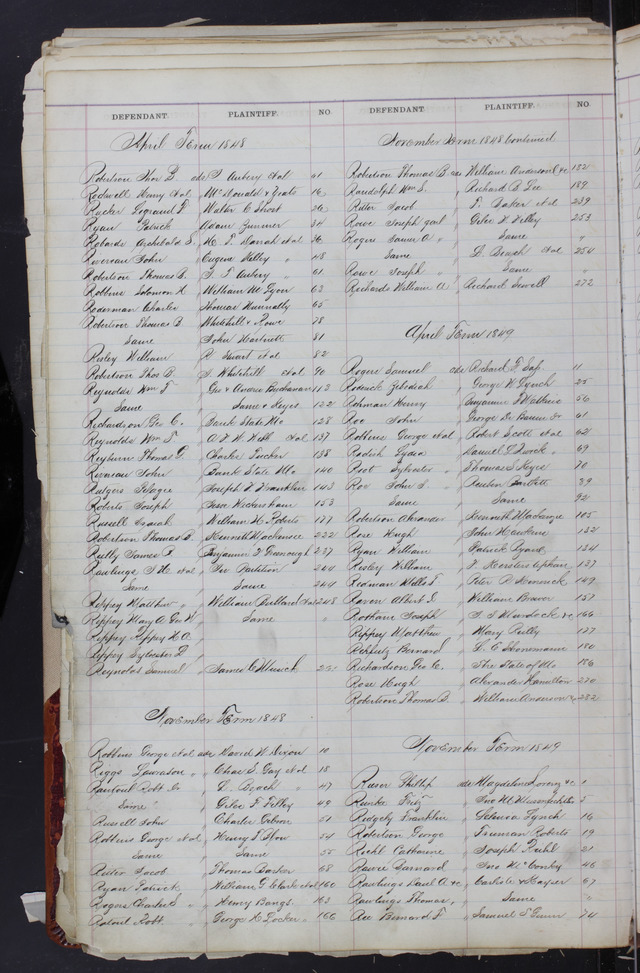 DEFENDANT. PLAINTIFF. NO.
April Term 1848
Robertson Thos B. ads T Aubery et al 41
Rodwell Henry et al " McDonald & Yeats 16
Rucker Legrand F " Walter C Short 26
Ryan Patrick " Adam Zimmer 34
Robards Archibald S. " 36
Riveneau John " Eugene Kelley " 48
Robertson Thomas B. " T. T. Aubery " 61
Robbins Solomon H " William M Tyson 63
Roderman Charles " Thomas Nunnally 65
Robertson Thomas B " Whitehill & Rowe 78
Same " John 81
Risley William " R Stuart et al 82
Robertson Thos B. " T Whitehill et al 90
Reynolds Wm T " Geo & Andrew Buchanan 112
Same " Same & Keyes 122
Richardson Geo C. " Bank State Mo 128
Reynolds Wm T. " A F W Webb et al 137
Reyburn Thomas G. " Charles Tucker 138
Riveneau John " Bank State Mo 140
Rutgers " Joseph T Franklin 143
Roberts Joseph " Wickersham 153
Russell Isaiah " William H. Roberts 177
Robertson Thomas B. " Kenneth Mackenzie 232
Reilly James F " Benjamin F 237
Rawlings et al " Partition 244
Same " Same 244
Rippey Matthew " " William Bullard et al 248
Rippey Mary A. " Same "
Rippey Rippey H A. "
Rippey Sylvester L "
Reynolds Samuel " James C 
November Term 1848
Robbins George et al ads David W. Dixon 10
Riggs Lawrason " " Chas S. Gay et al 18
Ranfoul Robt " D. Beach " 47
Same " " Giles F Filley 49
Russell John " Charles Gibson 51
Robbins George et al " Henry T. 54
Same " Same 55
Reiter Jacob " Thomas Barker 68
Ryan Patrick " William G. Clark et al 160
Rogers Charles " " Henry Bangs 163
Robt. " George K 166
DEFENDANT. PLAINTIFF. NO.
November Term 1848 Continued
Robertson Thomas B ads William Anderson &c 182
Randolph Wm S. " Richard B Lee 189
Ritter Jacob " F. Baker et al 239
Rowe Joseph " Giles F. Filley 253
Rogers James A " " Same "
Same " D. Beach et al 254
Rowe Joseph " Same "
Richards William A " Richard Sewell 272
April Term 1849
Rogers Samuel ads Richard F Sap. 11
Rodrick Zebediah " George W. Lynch 25
Henry " Benjamin F 56
Roe John " George 61
Robbins George et al " Robert Scott et al 62
Radish Lydia " Samuel 69
Root Sylvester " " Thomas S Keyes 70
Roe John S. " Reuben Bartlett 89
Same " Same 92
Robertson Alexander " Kenneth Mackenzie 105
Rose Hugh " John Hawkins 132
Ryan William " Patrick Ryan 134
Risley William " 137
Redman Wells T. " Peter D 149
Raven Albert G. " William Beaver 157
Joseph " T. S Murdock &c 166
Rippey Matthew " Mary Reilly 177
Bernard " 180
Richardson Geo C. " The State of Mo 186
Rose Hugh " Alexander Hamilton 270
Robertson Thomas B. " William Anderson &c 282
November Term 1849
Phillip ads Magdalena 
Fritz " Jno M 5
Ridgely Franklin " Lynch 16
Robertson George " Freeman Roberts 19
Riehl Catharine " Joseph Riehl 21
Bernard " Jno 46
Rawlings Paul A &c " Carlisle & 67
Rawlings Thomas " " Same "
Bernard F " Samuel S Gunn 74